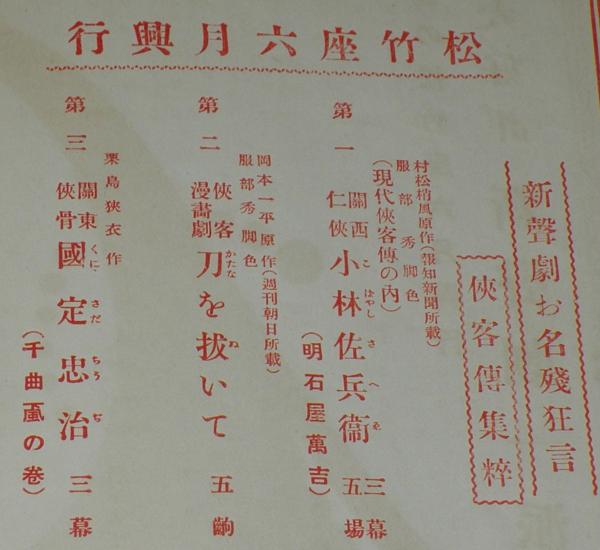 松竹座六月興行
新聲劇お名殘狂言
俠客傳集粹
第一
村松梢風原作(報知新聞所載)
服部秀脚色
(現代俠客傳の內)
關西仁俠 小林佐兵衞 三幕五場
こばやしさへゑ
(明石屋萬吉)
第二
岡本一平原作(週刊朝日所載)
服部秀脚色
俠客漫畵劇 刀を拔いて 五齣
かたな ぬ
第三
栗島狹衣作
關東俠骨 國定忠治 三幕
くにさだちうぢ
(千曲颪の卷)